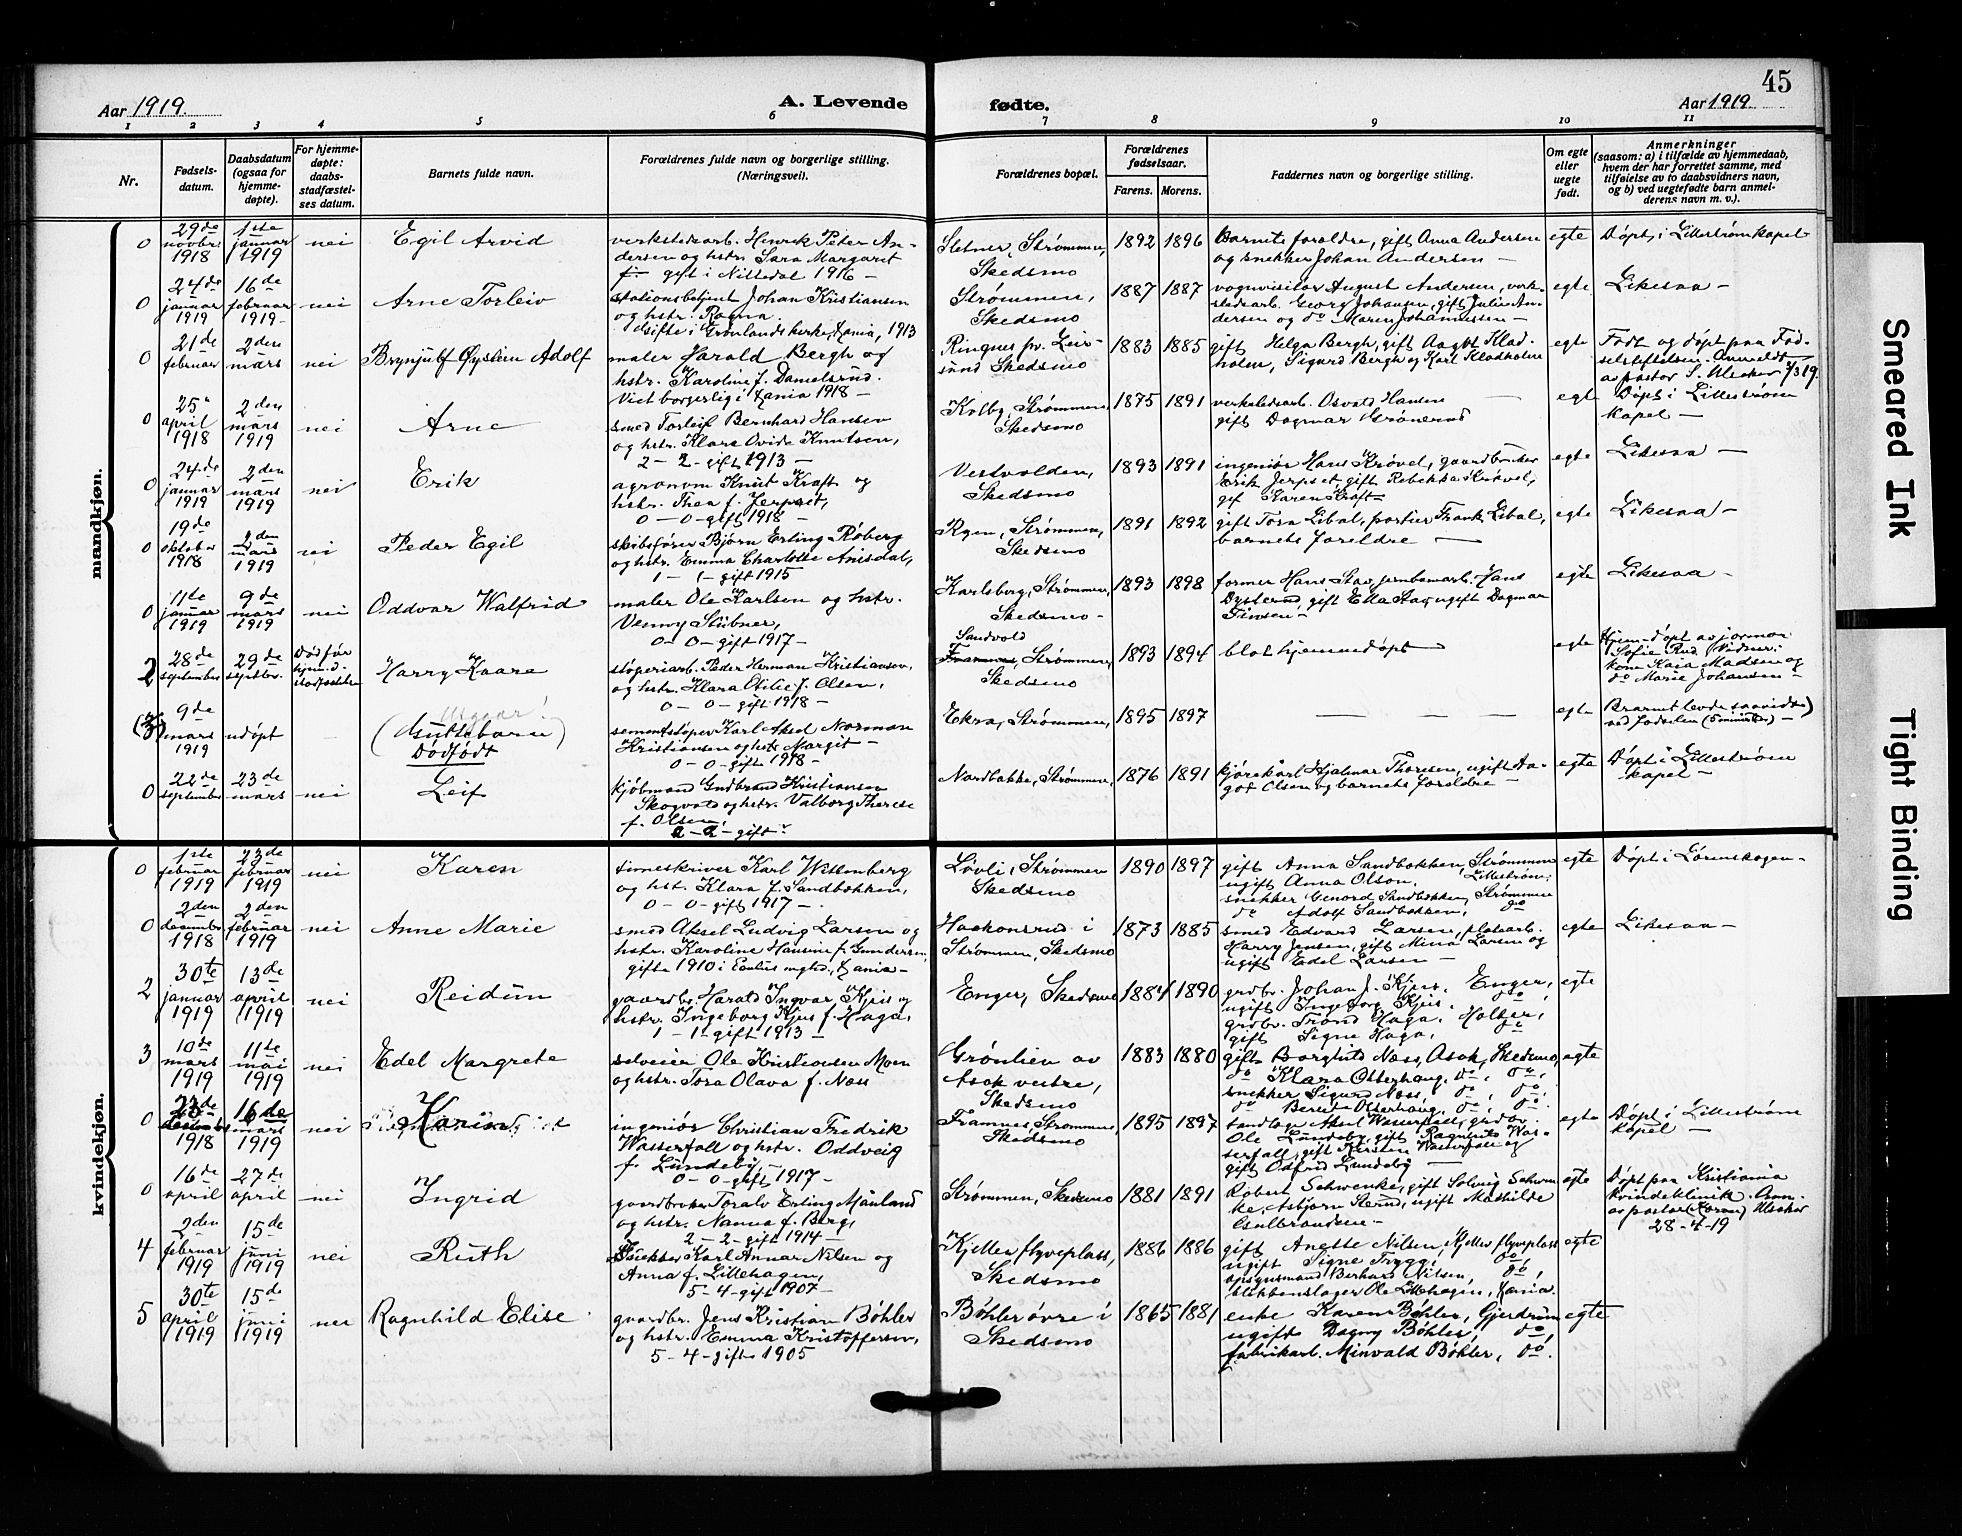 45
Aar 1919.
A. Levende
fødte.
Aar 1919
1 2 3 4 5 6 7 8 9 10 11
Nr.
Fødsels-
datum.
Daabsdatum
(ogsaa for
hjemme-
døpte).
For hjemme-
døpte:
daabs-
stadfæstel-
ses datum.
Barnets fulde navn.
Forældrenes fulde navn og borgerlige stilling.
(Næringsvei).
Forældrenes bopæl.
Forældrenes
fødselsaar.
Farens. Morens.
Faddernes navn og borgerlige stilling.
Om egte
eller
uegte
født.
Anmerkninger
(saasom: a) i tilfælde av hjemmedaab,
hvem der har forrettet samme, med
tilføielse av to daabsvidners navn,
og b) ved uegtefødte barn anmel-
derens navn m. v.).
mandkjøn.
0 29de novbr 1918 1ste januar 1919 nei Egil Arvid
verkstedsarb. Henrik Peter An-
dersen og hstr. Sara Margaret
f— gift i Nittedal 1916 —
Sletner, Strømmen,
Skedsmo
1892 1896
Barnets foreldre, gift Anna Andersen
og snekker Johan Andersen —
egte
Døpt i Lillestrøm kapel
0 24de januar 1919 16de februar 1919 nei Arne Torleiv
stationsbetjent Johan Kristiansen
og hstr. Ragna
Gifte i Grønlands kirke, Xania, 1913
Strømmen,
Skedsmo
1887 1887
vognvisitør August Andersen, verk-
stedsarb. Georg Johansen, gift Julie An-
dersen og do Maren Johannessen —
egte
Likesaa —
0 21de februar 2den mars nei Brynjulf Øystein Adolf
maler Harald Bergh og
hstr. Karoline f. Danielsrud.
Viet borgerlig i Xania 1918 —
Ringnes pr. Leir-
sund Skedsmo
1883 1885
gift Helga Bergh, gift Aagot Klad-
holm, Sigurd Bergh og Karl Kladholm
egte
Født og døpt paa Fød-
selsstiftelsen. Anmeldt
av pastor S. Ulecker 3/3 19.
0 25" april 1918 2den mars 1919 nei Arne
smed Torleif Bernhard Hansen
og hstr. Klara Ovide Knutsen,
2 — 2 — gift 1913 —
Kolby, Strømmen,
Skedsmo
1875 1891
verkstedsarb. Osvald Hansen —
gift Dagmar Grønerud
egte
Døpt i Lillestrøm
kapel —
0 24de januar 1919 2den mars 1919 nei Erik
agronom Knut Kraft og
hstr. Thea f. Jerpset,
0 — 0 — gift 1918 —
Vestvolden,
Skedsmo
1893 1891
ingeniør Hans Krøvel, gaardbruker
Erik Jerpset, gift Rebekka Krøvel,
gif Karen Kraft —
egte
Likesaa —
0 19de oktober 1918 2den mars 1919 nei Peder Egil
skibsfører Bjørn Erling Røberg
og hstr. Emma Charlotte Anisdal,
1 — 1 — gift 1915
Ryen, Strømmen,
Skedsmo
1891 1892
gift Tora Libal, portier Frank Libal,
barnets foreldre —
egte
Likesaa —
0 11te januar 1919 9de mars 1919 nei Oddvar Walfrid
maler Ole Karlsen og hstr.
Venny Stübner,
0 — 0 — gift 1917 —
Karlsberg, Strømmen,
Skedsmo —
1893 1898
former Hans Stav, jernbanearb. Hans
Dysterud, gift Ella Stav, ugift Dagmar
Timsen —
egte
Likesaa —
2 28de september 29de septbr. Død før hjem.d. stadfæstelse Harry Kaare
støperiarb. Peder Herman Kristiansen,
og hstr. Klara Otilie f. Olsen,
0 — 0 — gift 1918 —
Sandvold
Framnes, Strømmen,
Skedsmo
1893 1894
blot hjemmedøpt —
egte
Hjem-døpt av jormor
Sofie Rud. Vidner:
kone Kaja Madsen og
do Marie Johansen —
(3) 9de mars 1919 udøpt — (Guttebarn)
Dødfødt
sementstøper Karl Aksel Norman
Kristiansen og hstr. Margit —
0 — 0 — gift 1918 —
Ekra, Strømmen,
1895 1897
— — — —
egte
Barnet levde saavidt
ved fødselen (5 minutter) —
0 22de september 23de mars nei Leif
kjøbmand Gudbrand Kristiansen
Skogvold og hstr. Valborg Therese
f. Olsen,
2 — 2 — gift
Nordbakke, Strømmen,
1876 1891
kjørekarl Hjalmar Thoresen, ugift Aa-
got Olsen og barnets foreldre —
egte
Døpt i Lillestrøm
kapel —
kvindekjøn.
0 1ste februar 1919 23de februar 1919 nei Karen
timeskriver Karl Willenberg
og hst. Klara f. Sandbakken,
0 — 0 — gift 1917 —
Løvli, Strømmen
Skedsmo
1890 1897
gift Anna Sandbakken, Strømmen
ugift Anna Olson, Lillestrøm,
snekker Genord Sandbakken, Strømmen
do Adolf Sandbakken, do
egte
Døpt i Lørenskogen —
0 2den desember 1918 2den februar 1919 nei Anne Marie
smed Aksel Ludvig Larsen og
hstr. Karoline Hansine f. Gundersen,
gifte 1910 i Paulus mgtd., Xania —
Haakonsrud i
Strømmen, Skedsmo
1873 1885
smed Edvard Larsen, platearb.
Harry Jensen, gift Mina Larsen og
ugift Edel Larsen —
egte
Likesaa —
2 30te januar 1919 13de april 1919 nei Reidun
gaardbr. Harald Ingvar Kjus og
hstr. Ingeborg Kjus f. Haga,
1 — 1 — gift 1913 —
Enger, Skedsmo
1884 1890
grdbr. Johan J. Kjus, Enger,
ugift Ingeborg Kjus, do,
grdbr. Trond Haga, Holter,
gift Signe Haga, do
egte
3 10de mars 1919 11te mai 1919 nei Edel Margrete
selveier Ole Kristiansen Moen
og hstr. Tora Olava f. Næss
Grønlien av
Asak vestre,
Skedsmo
1883 1880
gift Borghild Næss, Asak, Skedsmo,
do Klara Otterhaug, do, do,
snekker Sigurd Næss, do, do.
do Bernt Otterhaug, do, do.
egte
0 23de desember 1918 16de mars 1919 nei Karin
ingeniør Christian Fredrik
Wasserfall og hstr. Oddveig
f. Lundeby,
0 — 0 — gift 1917 —
Framnes, Strømmen,
Skedsmo
1895 1897
tandlæge Aksel Wasserfall, grdbr.
Ole Lundeby, gift Ragnhild Was-
serfall, gift Kirsten Wasserfall og
gift Odfrid Lundeby —
egte
Døpt i Lillestrøm
kapel —
0 16de april 27de april nei Ingrid
gaardbruker Toralv Erling Mønland
og hstr. Nanna f. Berg,
2 — 2 — gift 1914 —
Strømmen, Skedsmo
1881 1891
Robert Schwenke, gift Solveig Schwen-
ke, Asbjørn Strand, ugift Mathilde
Gulbrandsen —
egte
Døpt paa Kristiania
kvindeklinik. Anm.
av pastor (Koren) Ulecker
28-4-19
4 2den februar 1919 15de juni 1919 nei Ruth
Karl Annar Nilsen og
Anna f. Lillehagen,
5 — 4 — gift 1907 —
Kjeller flyveplass,
Skedsmo
1886 1886
gift Anette Nilsen, Kjeller flyveplass
ugift Signe Trygg, do,
opsynsmand Berhard Nilsen, do,
blikkenslager Ole Lillehagen, Xania.
egte
5 30te april 1919 15de juni 1919 nei Ragnhild Elise
gaardbr. Jens Kristian Bøhler
og hstr. Emma Kristoffersen,
5 — 4 — gift 1905
Bøhler øvre i
Skedsmo
1865 1881
enke Karen Bøhler, Gjerdrum
ugift Dagny Bøhler, do,
fabrikarb. Minvald Bøhler, do.
egte
Smeared Ink
Tight Binding